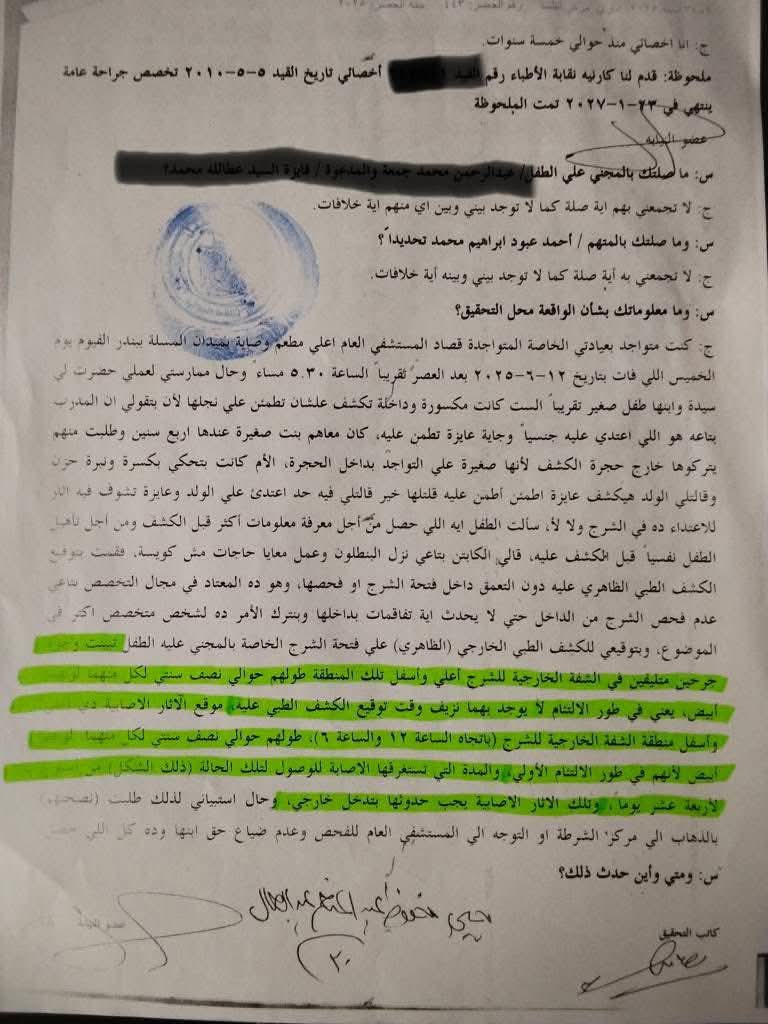 ج: انا اخصائي منذ حوالي خمسة سنوات.
ملحوظة: قدم لنا كارنيه نقابة الأطباء رقم أخصائي تاريخ القيد ٥-٥-٢٠١٠ تخصص جراحة عامة
ينتهي في ٢٣-١-٢٠٢٧ تمت الملحوظة
عضو النيابه
س: ما صلتك بالمجني علي الطفل/
ج: لا تجمعني بهم اية صلة كما لا توجد بيني وبين اي منهم اية خلافات.
س: وما صلتك بالمتهم / أحمد عبود ابراهيم محمد تحديداً؟
ج: لا تجمعني به أية صلة كما لا توجد بيني وبينه أية خلافات.
س: وما معلوماتك بشأن الواقعة محل التحقيق؟
ج: كنت متواجد بعيادتي الخاصة المتواجدة قصاد المستشفي العام اعلي مطعم وصاية بميدان المسلة ببندر الفيوم يوم
الخميس اللي فات بتاريخ ١٢-٦-٢٠٢٥ بعد العصر تقريباً الساعة ٥.٣٠ مساء وحال ممارستي لعملي حضرت لي
سيدة وابنها طفل صغير تقريباً الست كانت مكسورة وداخلة تكشف علشان تطمئن علي نجلها لأن بتقولي ان المدرب
بتاعه هو اللي اعتدي عليه جنسياً وجاية عايزة تطمن عليه، كان معاهم بنت صغيرة عندها اربع سنين وطلبت منهم
يتركوها خارج حجرة الكشف لأنها صغيرة علي التواجد بداخل الحجرة، الأم كانت بتحكي بكسرة ونبرة حزن
وقالتلي الولد هيكشف عايزة اطمئن أطمن عليه قلتلها خير قالتلي فيه حد اعتدي علي الولد وعايزة تشوف فيه اثار
للاعتداء ده في الشرج ولا لأ، سألت الطفل ايه اللي حصل من أجل معرفة معلومات أكثر قبل الكشف ومن اجل تأهيل
الطفل نفسياً قبل الكشف عليه، قالي الكابتن بتاعي نزل البنطلون وعمل معايا حاجات مش كويسة، فقمت بتوقيع
الكشف الطبي الظاهري عليه دون التعمق داخل فتحة الشرج او فحصها، وهو ده المعتاد في مجال التخصص بتاعي
عدم فحص الشرج من الداخل حتي لا يحدث اية تفاقمات بداخلها وبنترك الأمر ده لشخص متخصص اكثر في
الموضوع، وبتوقيعي للكشف الطبي الخارجي (الظاهري) علي فتحة الشرج الخاصة بالمجني عليه الطفل تبينت وجود
جرحين متليفين في الشفة الخارجية للشرج أعلي وأسفل تلك المنطقة طولهم حوالي نصف سنتي لكل منهما
أبيض، يعني في طور الالتئام لا يوجد بهما نزيف وقت توقيع الكشف الطبي علية، موقع الاثار الاصابية
وأسفل منطقة الشفة الخارجية للشرج (باتجاه الساعة ١٢ والساعة ٦)، طولهم حوالي نصف سنتي لكل منهما
أبيض لأنهم في طور الالتئام الأولي، والمدة التي تستغرقها الاصابة للوصول لتلك الحالة (ذلك الشكل) من
لأربعة عشر يوماً، وتلك الاثار الاصابية يجب حدوثها بتدخل خارجي، وحال استبياني لذلك طلبت (نصحتهم)
بالذهاب الي مركز الشرطة او التوجه الي المستشفي العام للفحص وعدم ضياع حق ابنها وده كل اللي حصل
س: ومتي وأين حدث ذلك؟
كاتب التحقيق
(٣٠)